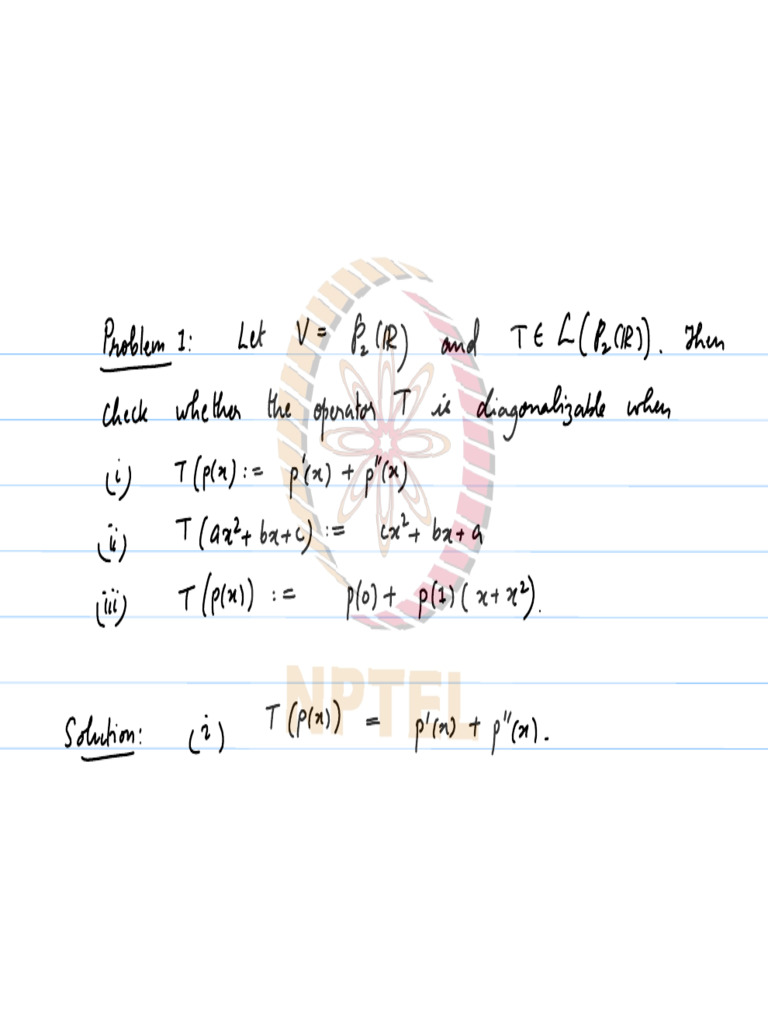 Problem 1: Let V = P₂(ℝ) and T ∈ L(P₂(ℝ)). Then
check whether the operator T is diagonalizable when
(i) T(p(x) := p'(x) + p''(x)
(ii) T(ax² + bx + c) := cx² + bx + a
(iii) T(p(x)) := p(0) + p(1)(x + x²).
NPTEL
Solution: (i) T(p(x)) = p'(x) + p''(x).